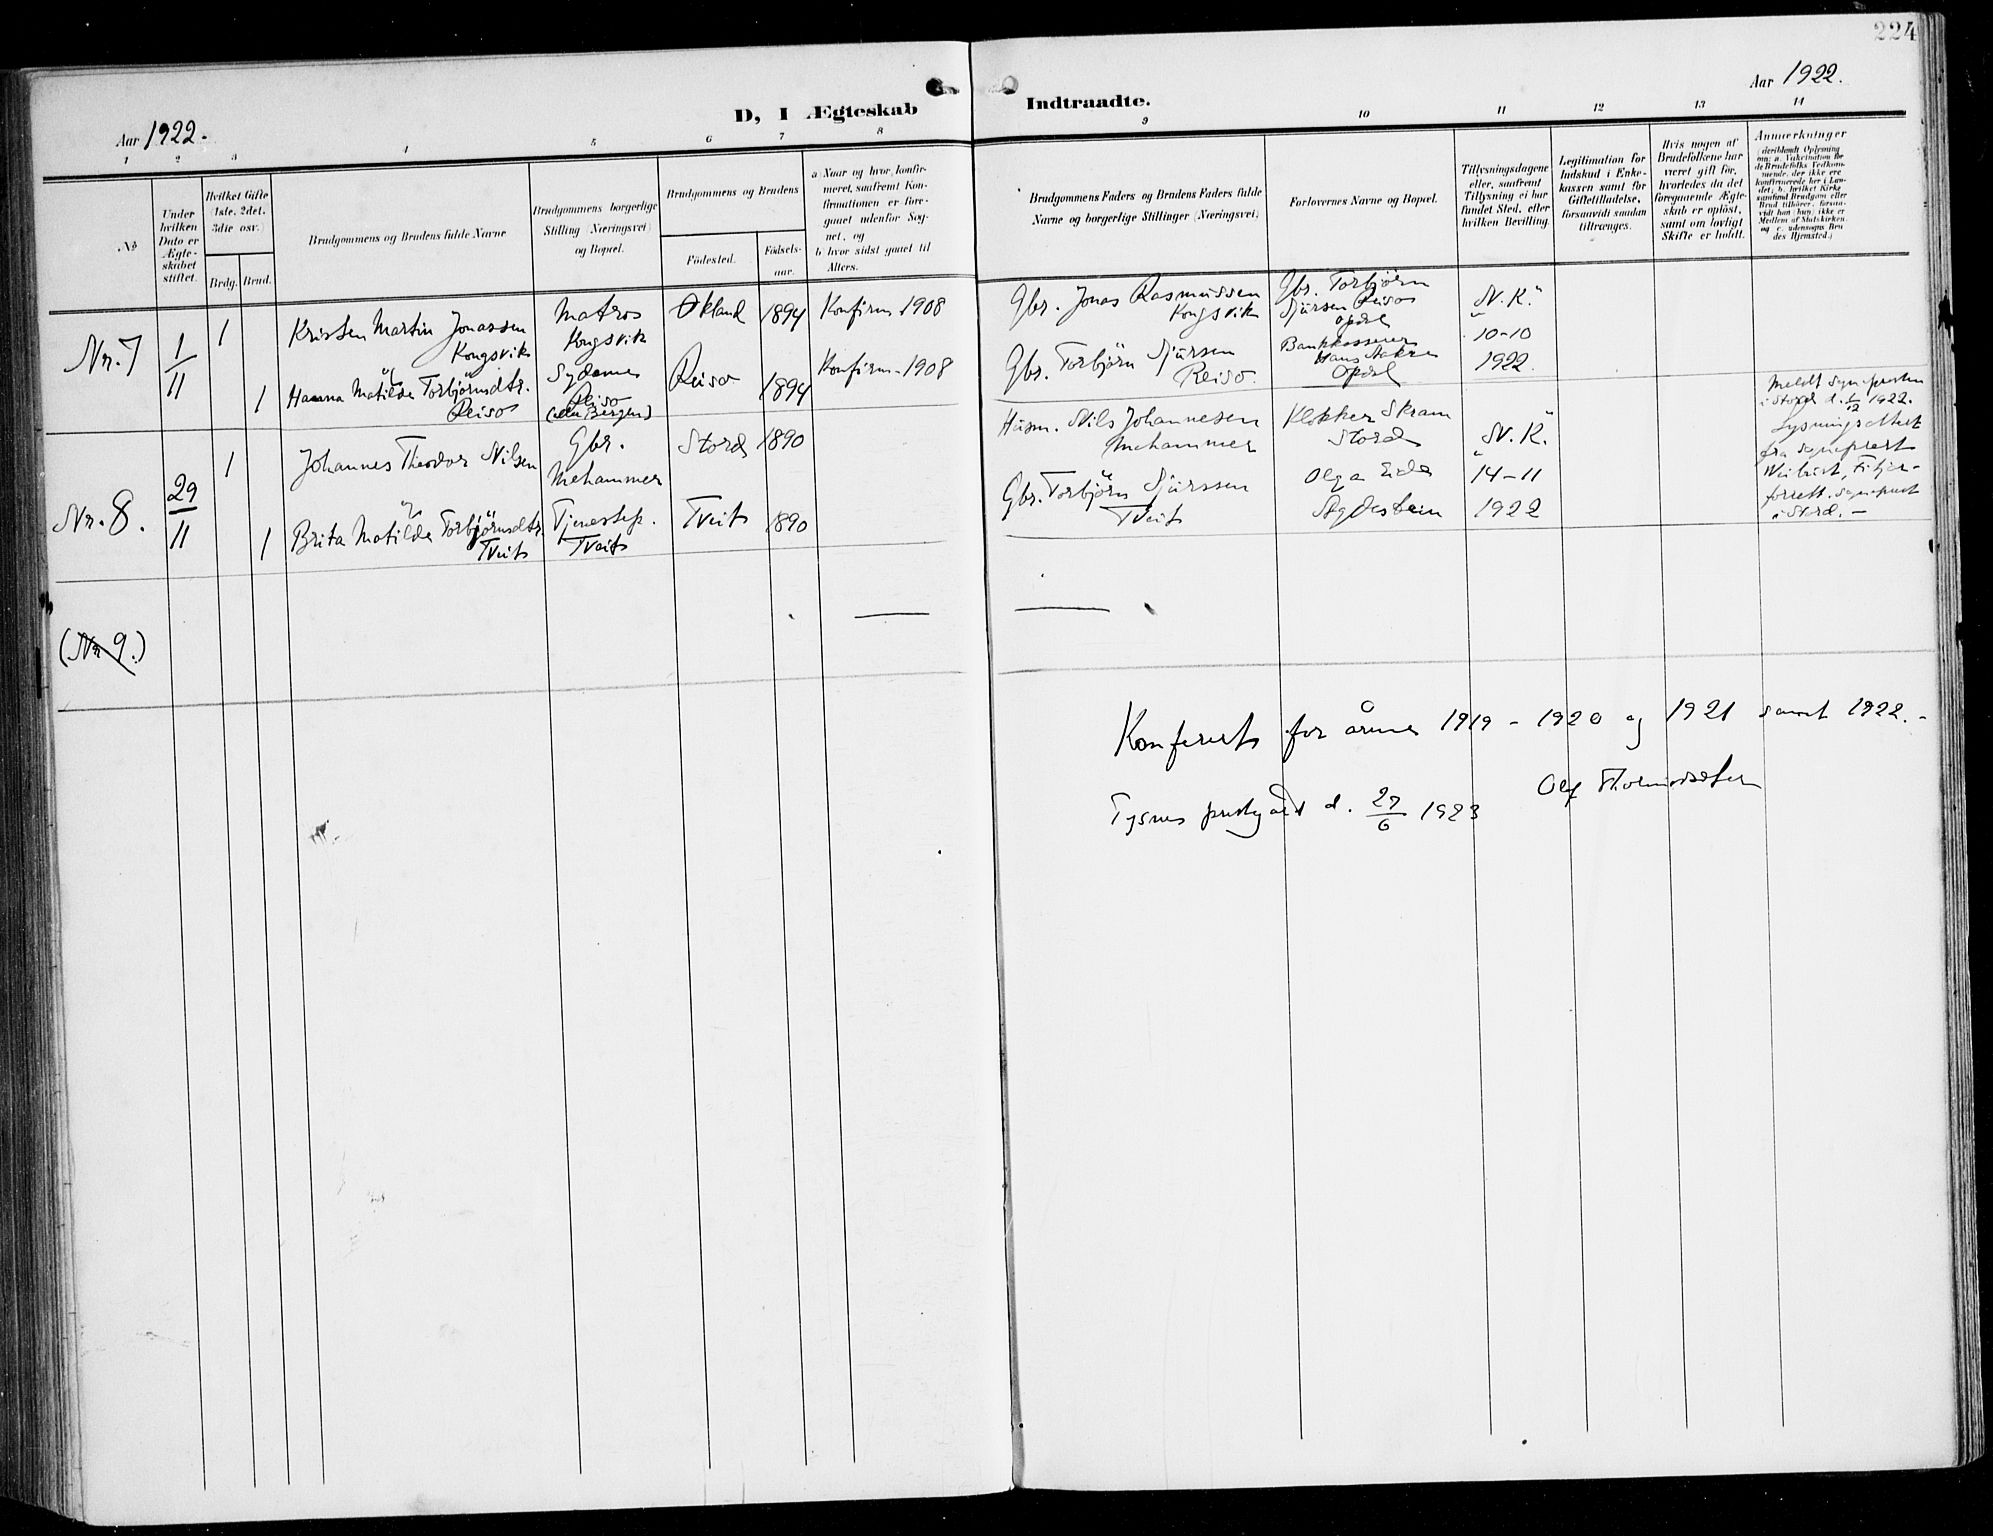 224
Aar 1922.
D, I Ægteskab
Indtraadte.
Aar 1922.
1 2 3 4 5 6 7 8
9 10 11 12 13 14
No
Under hvilken Dato er Ægteskabet stiftet.
Hvilket Gifte (1ste, 2det, 3die osv.)
Brdg. Brud.
Brudgommens og Brudens fulde Navne
Brudgommens borgerlige Stilling (Næringsvei) og Bopæl.
Brudgommens og Brudens
Fødested.
Fødselsaar.
a) Naar og hvor konfirmeret, saafremt Konfirmationen er foregaaet udenfor Sognet, og
b) hvor sidst gaaet til Alters.
Brudgommens Faders og Brudens Faders fulde Navne og borgerlige Stillinger (Næringsvei)
Forlovernes Navne og Bopæl.
Tillysningsdagene eller, saafremt Tillysning ei har fundet Sted, efter hvilken Bevilling.
Legitimation for Indskud i Enkekassen samt for Giftetilladelse, forsaavidt saadan tiltrænges.
Hvis nogen af Brudefolkene har været gift før, hvorledes da det foregaaende Ægteskab er opløst, samt om lovligt Skifte er holdt.
Anmærkninger
(deriblandt Oplysning om: a. Vakcination for de Brudefolks Vedkommende, der ikke ere konfirmerede her i Landet; b. hvilket Kirkesamfund Brudgom eller Brud tilhører, forsaavidt han (hun) ikke er Medlem af Statskirken, og c. udensogns Brudes Hjemsted.)
Nr. 7
1/11
1
Kristen Martin Jonassen
Kongsvik
Matros
Kongsvik
Økland
1894
Konfirm. 1908
Gbr. Jonas Rasmussen
Kongsvik
Gbr. Torbjörn
Sjursen Reiso
Opdal
"N. K."
1
Hanna Matilde Torbjörnsdtr.
Reiso
Sydame
Reiso
(elev Bergen)
Reiso
1894
Konfirm. 1908
Gbr. Torbjörn Sjursen
Reiso.
Bankkasserer
Hans Aakre
Opdal
10-10
1922.
Nr. 8.
29/11
1
Johannes Theodor Nilsen
Gbr.
Mehammer
Stord
1890
Husm. Nils Johannesen
Mehammer
Klokker Skram
Stord
"N. K."
Meldt sognepresten
i Stord d. 1/12 1922.
Lysningsattest
fra sogneprest
1
Brita Matilde Torbjörnsdtr.
Tveit
Tjenestep.
Tveit
Tveit
1890
Gbr. Torbjörn Sjurssen
Tveit
Olga Eide
14-11
1922
forrett. sogneprest
i Stord. —
(Nr 9.)
Konferert for årene 1919 - 1920 og 1921 samt 1922. -
Tysnes prestgård d. 27/6 1923